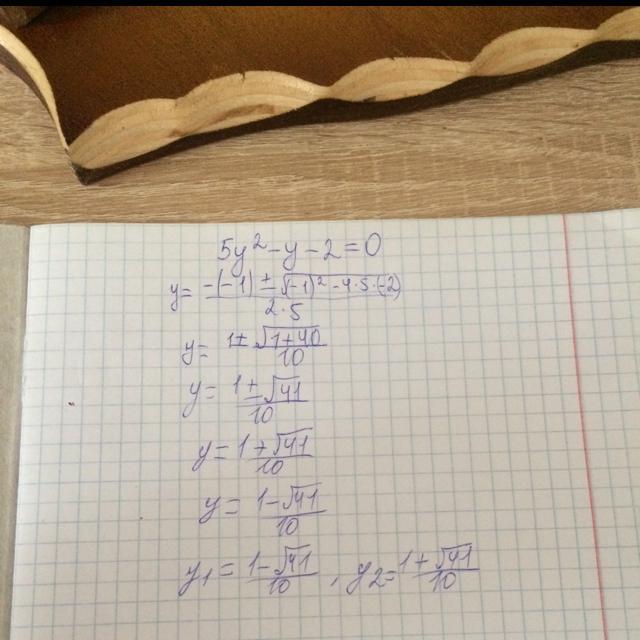 5y² - y - 2 = 0
y = (-(-1) ± √((-1)² - 4·5·(-2))) / (2·5)
y = (1 ± √(1+40)) / 10
y = (1 ± √41) / 10
y = (1 + √41) / 10
y = (1 - √41) / 10
y₁ = (1 - √41) / 10 , y₂ = (1 + √41) / 10